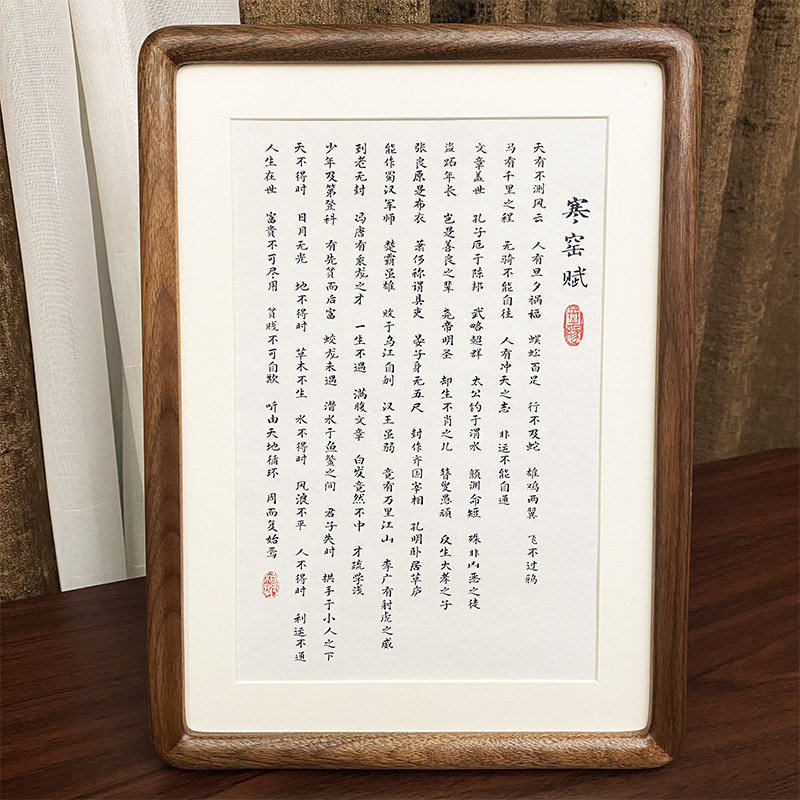 寒窑赋
天有不测风云 人有旦夕祸福 蜈蚣百足 行不及蛇 雄鸡两翼 飞不过鸦
马有千里之程 无骑不能自往 人有冲天之志 非运不能自通
文章盖世 孔子厄于陈邦 武略超群 太公钓于渭水 颜渊命短 殊非凶恶之徒
盗跖年长 岂是善良之辈 尧帝明圣 却生不肖之儿 瞽叟愚顽 反生大孝之子
张良原是布衣 萧何称谓县吏 晏子身无五尺 封作齐国宰相 孔明卧居草庐
能作蜀汉军师 楚霸虽雄 败于乌江自刎 汉王虽弱 竟有万里江山 李广有射虎之威
到老无封 冯唐有乘龙之才 一生不遇 满腹文章 白发竟然不中 才疏学浅
少年及第登科 有先贫而后富 蛟龙未遇 潜水于鱼鳖之间 君子失时 拱手于小人之下
天不得时 日月无光 地不得时 草木不生 水不得时 风浪不平 人不得时 利运不通
人生在世 富贵不可尽用 贫贱不可自欺 听由天地循环 周而复始焉